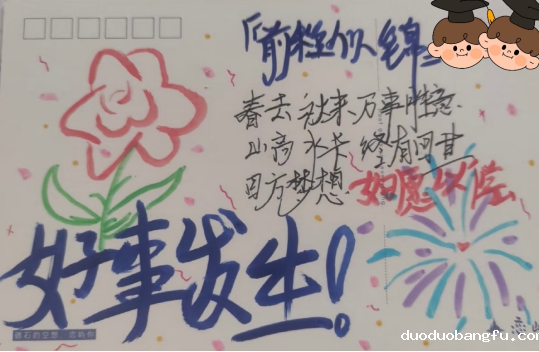 『前程似锦』
春去秋来、万事胜意
山高水长 终有回甘
四方梦想 如愿以偿
好事发生!
duoduobangfu.com